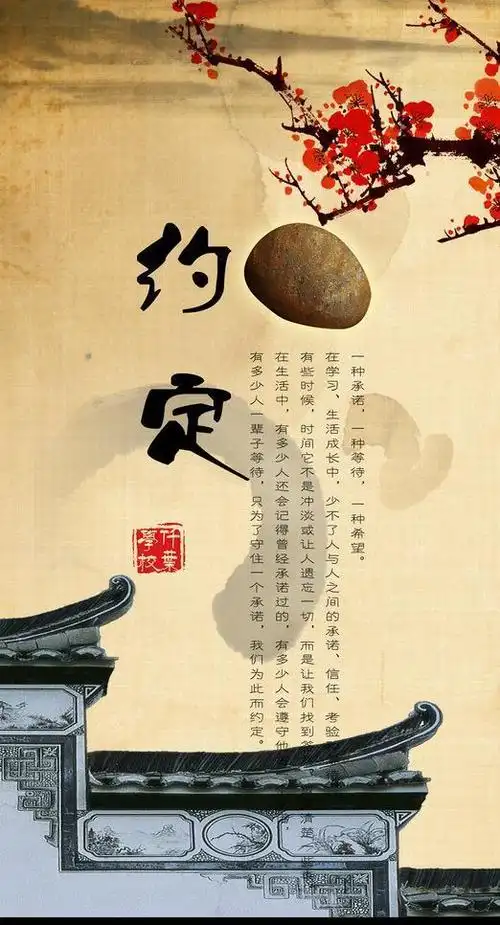 约定
一种承诺，一种等待，一种希望。
在学习、生活成长中，少不了人与人之间的承诺、信任、考验
有些时候，时间它不是冲淡或让人遗忘一切，而是让我们找到答 清楚
在生活中，有多少人还会记得曾经承诺过的，有多少人会遵守他
有多少人一辈子等待，只为了守住一个承诺，我们为此而约定。
仟叶
学校